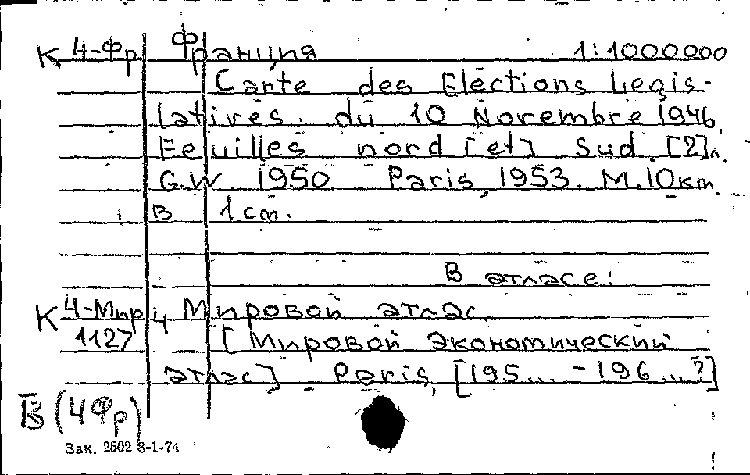 К 4-Фр Франция 1:1000000
Carte des Elections Legis-
latives. du 10 Novembre 1946.
Feuilles nord [et] Sud. [2]л.
G.W. 1950 Paris, 1953. М.10km.
в 1cm.
В атласе:
К 4-Мир 4 Мировой атлас.
1127 [Мировой экономический
атлас]. Paris, [195... - 196...?]
В (4Фр)
Зак. 2602 3-1-74